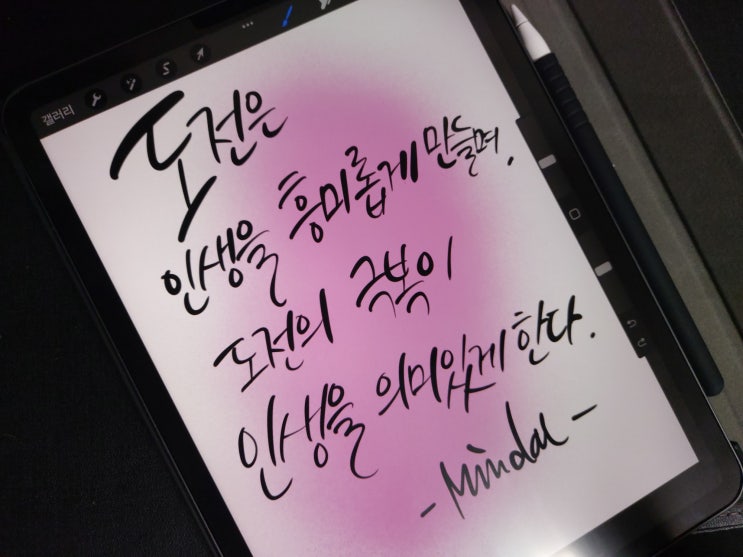 갤러리
도전은
인생을 흥미롭게 만들며,
도전의 극복이
인생을 의미있게 한다.
-Mindal-